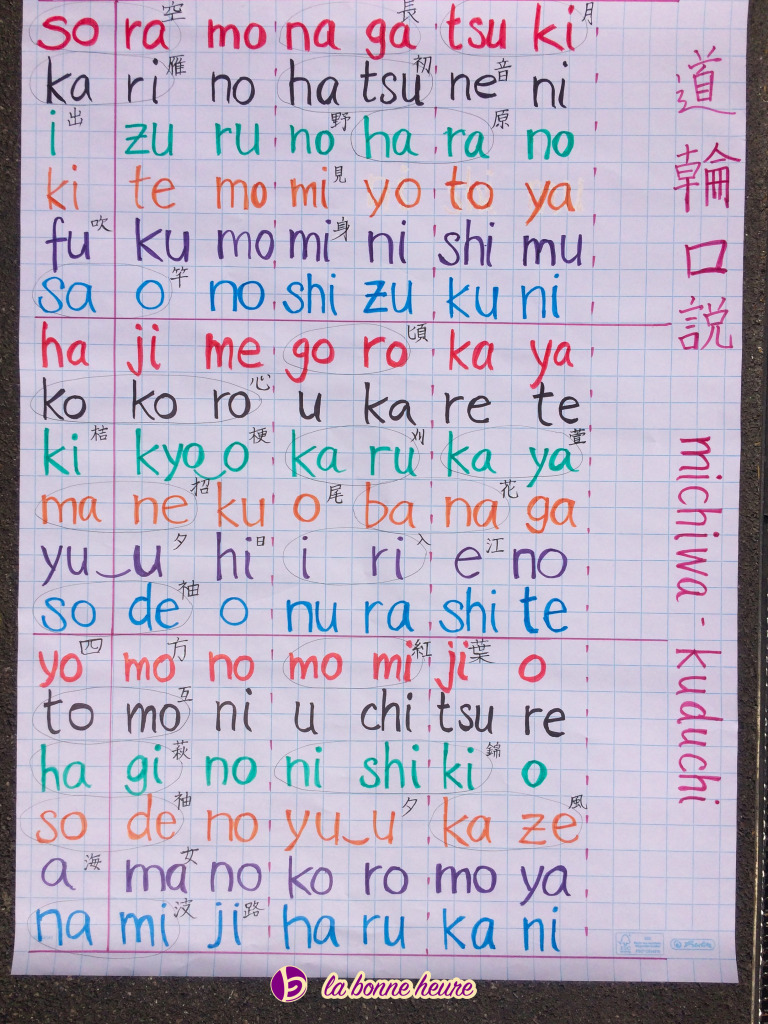 so ra 空 mo na ga 長 tsu ki 月
ka ri 雁 no ha tsu 初 ne 音 ni
i 出 zu ru no 野 ha ra 原 no
ki te mo mi 見 yo to ya
fu 吹 ku mo mi 身 ni shi mu
sa o 竿 no shi zu ku ni
ha ji me go ro 頃 ka ya
ko ko ro 心 u ka re te
ki 桔 kyo_o 梗 ka ru 刈 ka ya 萱
ma ne 招 ku o 尾 ba na 花 ga
yu_u 夕 hi 日 i ri 入 e 江 no
so de 袖 o nu ra shi te
yo 四 mo 方 no mo mi 紅 ji 葉 o
to mo 互 ni u chi tsu re
ha gi 萩 no ni shi ki 錦 o
so de 袖 no yu_u 夕 ka ze 風
a 海 ma 女 no ko ro mo ya
na mi 波 ji 路 ha ru ka ni
道輪口説
michiwa - kuduchi
la bonne heure